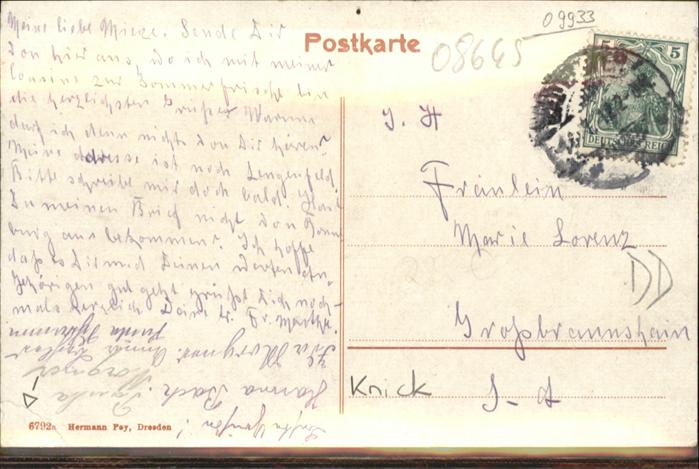 09933
08645
Postkarte
5 5
DEUTSCHES REICH
Meine liebe Mieze. Sende Dir
von hier aus, wo ich mit meiner
Cousine zur Sommerfrische bin
die herzlichsten Grüße. Warum
darf ich denn nichts von Dir hören.
Meine Adresse ist noch Lengenfeld.
Bitte schreibe mir doch bald. Hast
Du meinen Brief nicht von
burg aus bekommen? Ich hoffe
daß es Dir und Deinen werten An-
gehörigen gut geht grüßt Dich noch-
mals herzlich Deine Fr. Martha.
Hanna Bach.
Paula
Fräulein
Marie Lorenz
Großbraunshain
S-A
DD
Knick
6792a Hermann Poy, Dresden